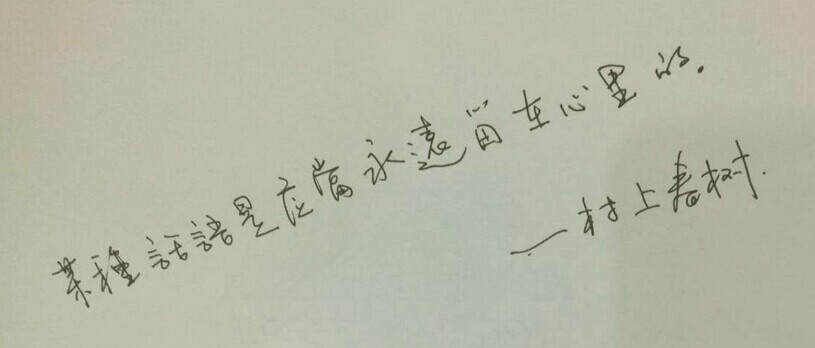 某種話語是应當永遠留在心里的.
—村上春树.